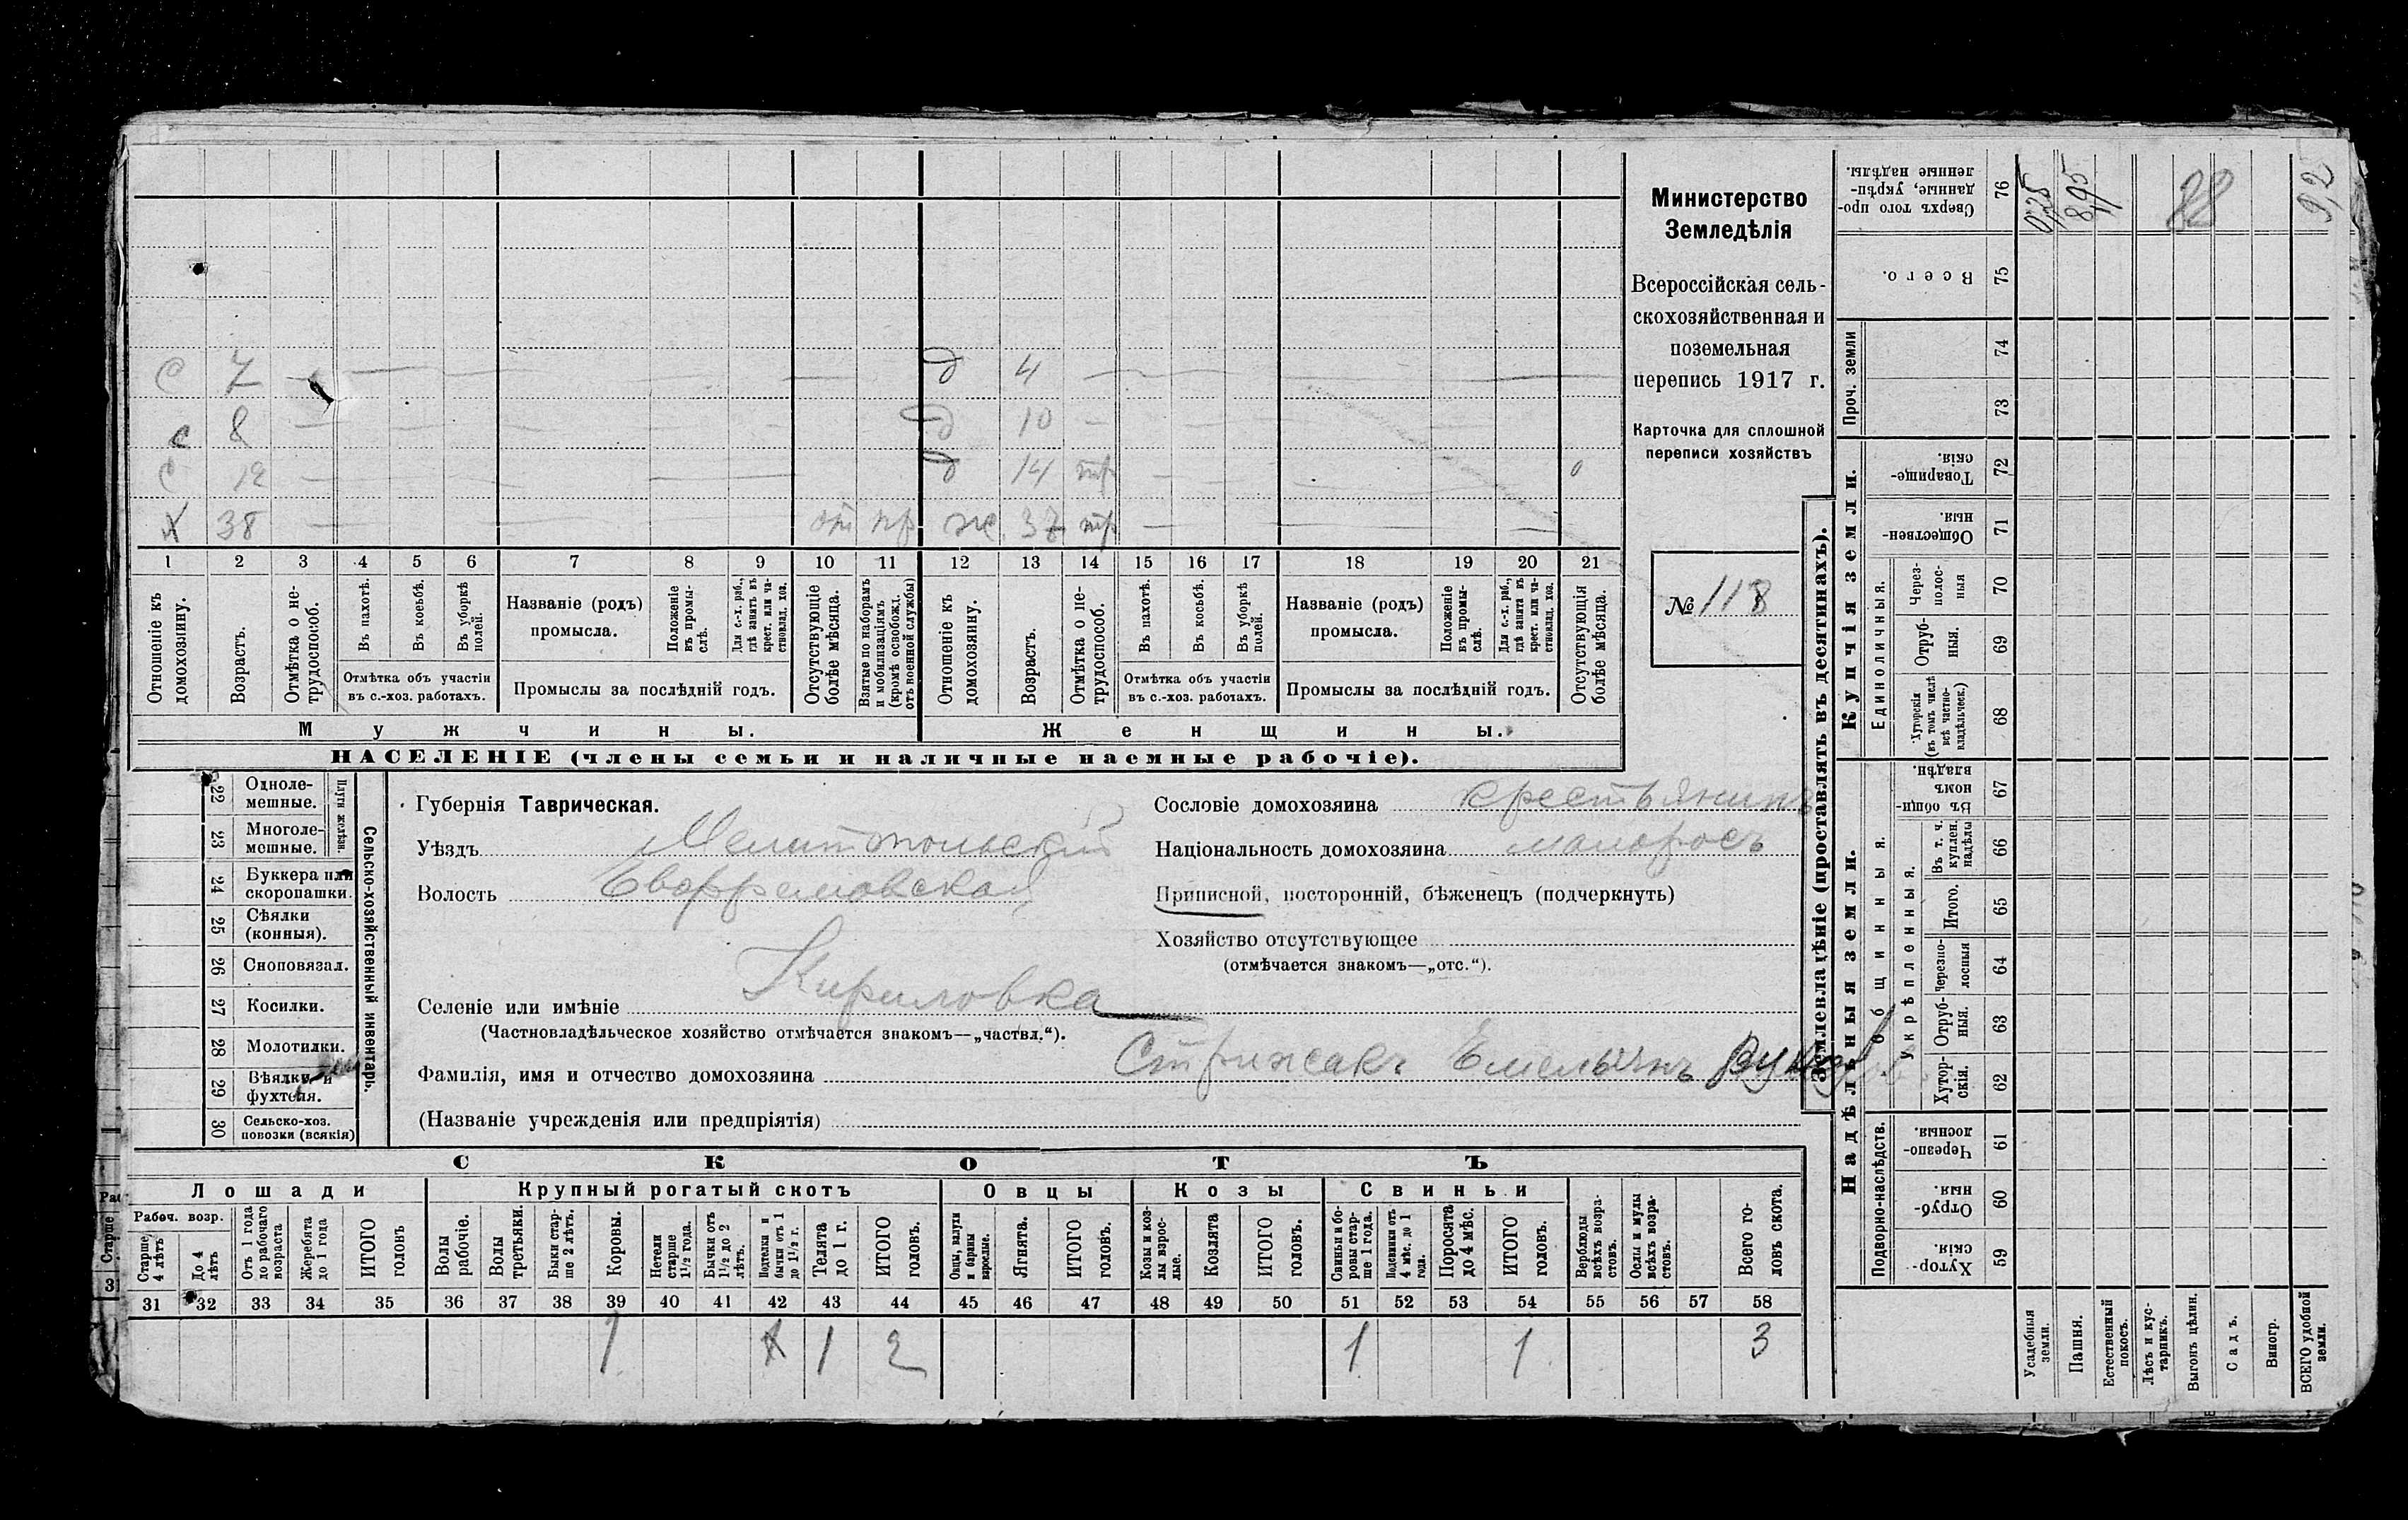 Министерство
Земледѣлія
Всероссійская сель-
скохозяйственная и
поземельная
перепись 1917 г.
Карточка для сплошной
переписи хозяйствъ
№ 118
с 7 — д 4
с 8 — д 10
с 12 — д 14 тр
Х 38 — от пр ж. 37 тр
1 2 3 4 5 6 7 8 9 10 11 12 13 14 15 16 17 18 19 20 21
Отношеніе къ домохозяину.
Возрастъ.
Отмѣтка о не-трудоспособ.
Въ пахотѣ.
Въ косьбѣ.
Въ уборкѣ полей.
Отмѣтка объ участіи
въ с.-хоз. работахъ.
Названіе (родъ)
промысла.
Положеніе въ промы-слѣ.
Для с.-х. раб., гдѣ занятъ въ крест. или ча-стновлад. хоз.
Промыслы за послѣдній годъ.
Отсутствующіе болѣе мѣсяца.
Взятые по наборамъ и мобилизаціямъ (кромѣ освобожд. отъ военной службы)
Отношеніе къ домохозяину.
Возрастъ.
Отмѣтка о не-трудоспособ.
Въ пахотѣ.
Въ косьбѣ.
Въ уборкѣ полей.
Отмѣтка объ участіи
въ с.-хоз. работахъ.
Названіе (родъ)
промысла.
Положеніе въ промы-слѣ.
Для с.-х. раб., гдѣ занята въ крест. или ча-стновлад. хоз.
Промыслы за послѣдній годъ.
Отсутствующія болѣе мѣсяца.
Мужчины. Женщины.
НАСЕЛЕНІЕ (члены семьи и наличные наемные рабочіе).
22 Одноле-мешные.
23 Многоле-мешные.
Плуги желѣзн.
24 Буккера или скоропашки.
25 Сѣялки (конныя).
26 Сноповязал.
27 Косилки.
28 Молотилки.
29 Вѣялки и фухтеля.
30 Сельско-хоз. повозки (всякія)
Сельско-хозяйственный инвентарь.
Губернія Таврическая.
Уѣздъ Мелитопольскій
Волость Ефремовская
Селеніе или имѣніе Кириловка
(Частновладѣльческое хозяйство отмѣчается знакомъ—„частвл.“).
Сословіе домохозяина крестьянинъ
Національность домохозяина малоросъ
Приписной, посторонній, бѣженецъ (подчеркнуть)
Хозяйство отсутствующее
(отмѣчается знакомъ—„отс.“).
Фамилія, имя и отчество домохозяина Стрижакъ Емельянъ
(Названіе учрежденія или предпріятія)
СКОТЪ
Лошади
Рабоч. возр.
Старше 4 лѣтъ
До 4 лѣтъ
Отъ 1 года до рабочаго возраста
Жеребята до 1 года
ИТОГО головъ
Крупный рогатый скотъ
Волы рабочіе.
Волы третьяки.
Быки стар-ше 2 лѣтъ.
Коровы.
Нетели старше 1½ года.
Бычки отъ 1½ до 2 лѣтъ.
Подтелки и бычки отъ 1 до 1½ г.
Телята до 1 г.
ИТОГО головъ.
Овцы
Овцы, валухи и бараны взрослые.
Ягнята.
ИТОГО головъ.
Козы
Козы и коз-лы взрос-лые.
Козлята
ИТОГО головъ.
Свиньи
Свиньи и бо-ровы стар-ше 1 года.
Подсвинки отъ 4 мѣс. до 1 года.
Поросята до 4 мѣс.
ИТОГО головъ.
Верблюды всѣхъ возра-стовъ.
Ослы и мулы всѣхъ возра-стовъ.
Всего го-ловъ скота.
31 32 33 34 35 36 37 38 39 40 41 42 43 44 45 46 47 48 49 50 51 52 53 54 55 56 57 58
1 1 2 1 1 3
Землевладѣніе (проставлять въ десятинахъ).
Купчія земли.
Надѣльныя земли.
Проч. земли
Единоличныя.
Общинныя.
Укрѣпленныя.
Подворно-наслѣдств.
76 Сверхъ того про-данные, укрѣп-ленные надѣлы.
75 Всего.
74
73
72 Товарище-скія.
71 Обществен-ныя.
70 Через-полос-ныя
69 Отруб-ныя.
68 Хуторскія (въ томъ числѣ всѣ частно-владѣльческ.)
67 Въ общи-номъ владѣн.
66 Въ т. ч. куплен. надѣлы
65 Итого.
64 Черезпо-лосныя
63 Отруб-ныя.
62 Хутор-скія.
61 Черезпо-лосныя.
60 Отруб-ныя.
59 Хутор-скія.
Усадебныя земли.
Пашня.
Естественный покосъ.
Лѣсъ и кус-тарникъ.
Выгонъ цѣлин.
Садъ.
Виногр.
ВСЕГО удобной земли.
0,25
8,95